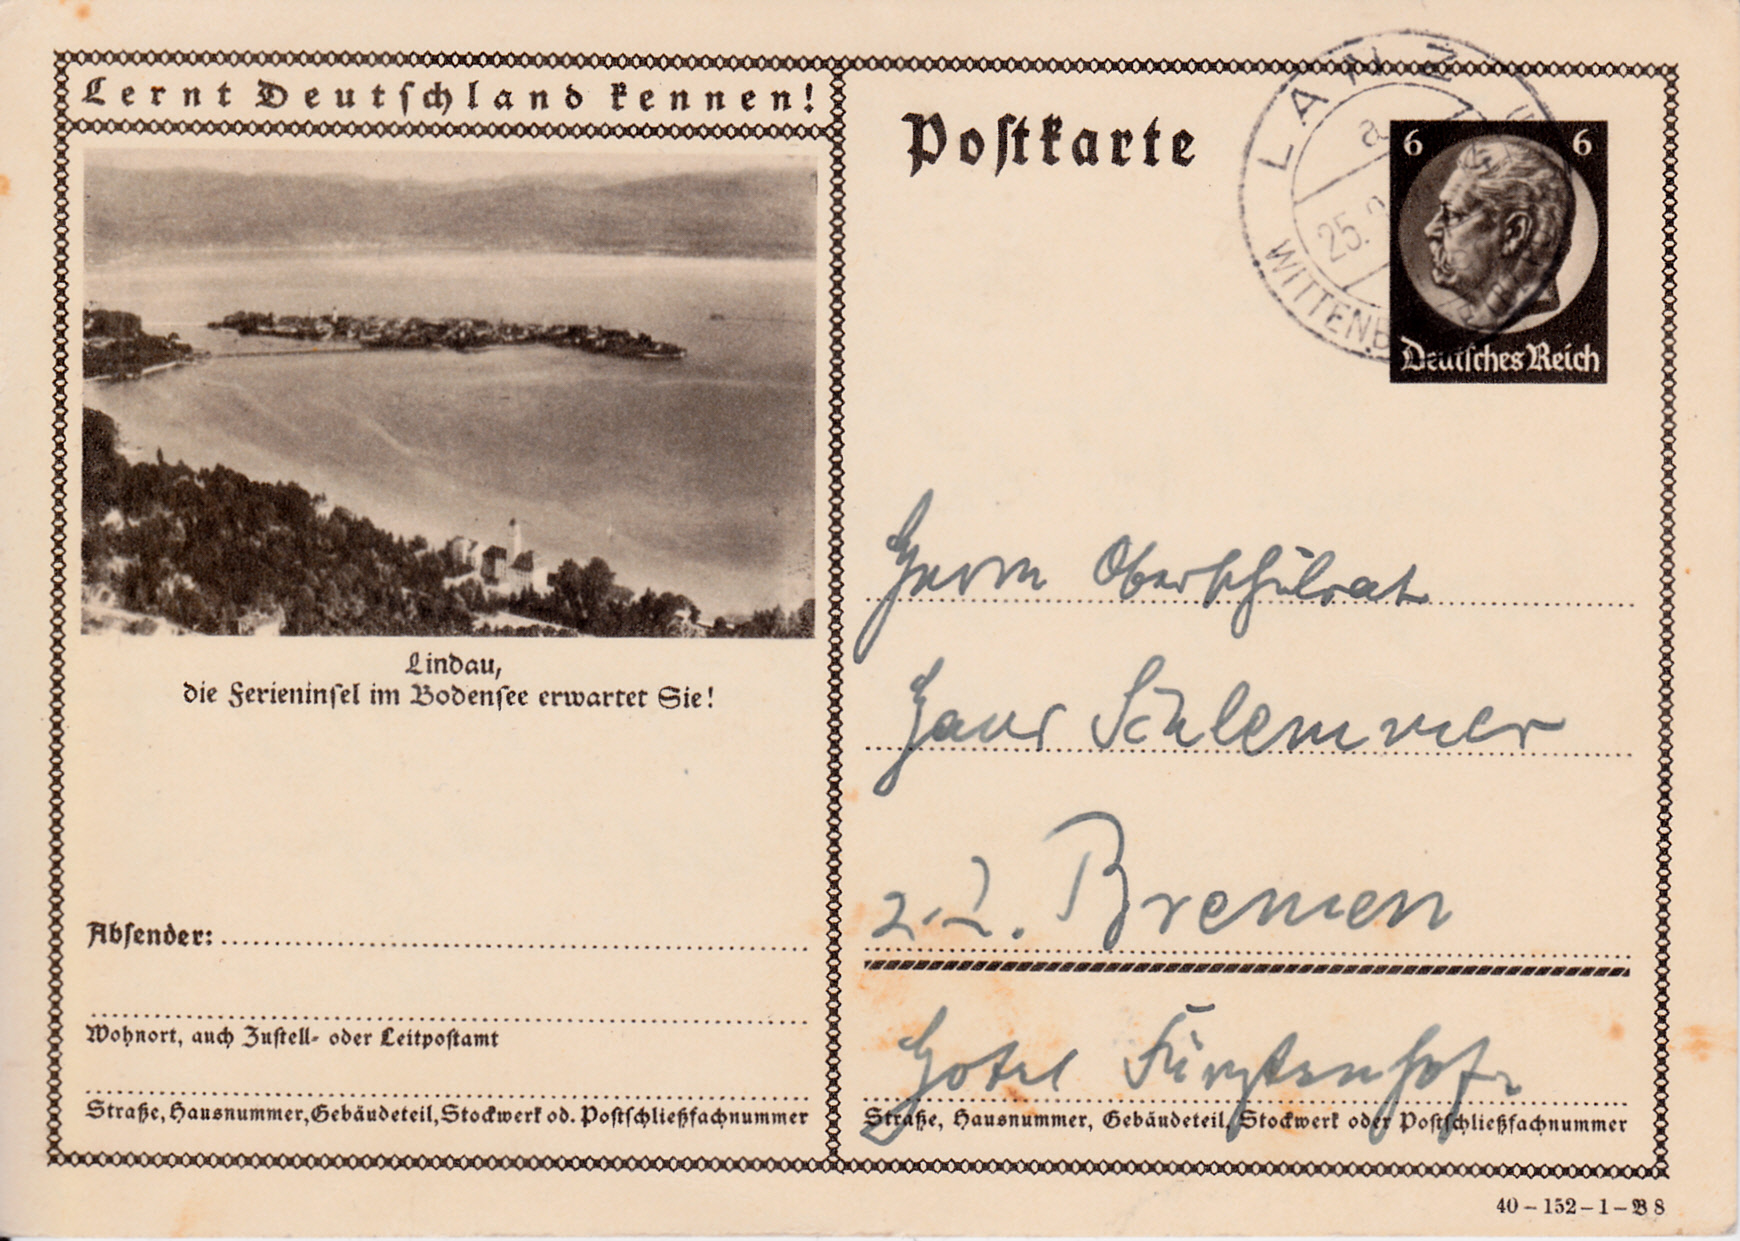 Lernt Deutschland kennen!
Lindau,
die Ferieninsel im Bodensee erwartet Sie!
Absender:
Wohnort, auch Zustell- oder Leitpostamt
Straße, Hausnummer, Gebäudeteil, Stockwerk od. Postschließfachnummer
Postkarte
a
25.
WITTENB
6 6
Deutsches Reich
Herrn Oberschulrat
Hans Schlemmer
z. Z. Bremen
Hotel Fürstenhof
Straße, Hausnummer, Gebäudeteil, Stockwerk oder Postschließfachnummer
40 – 152 – 1 – B 8